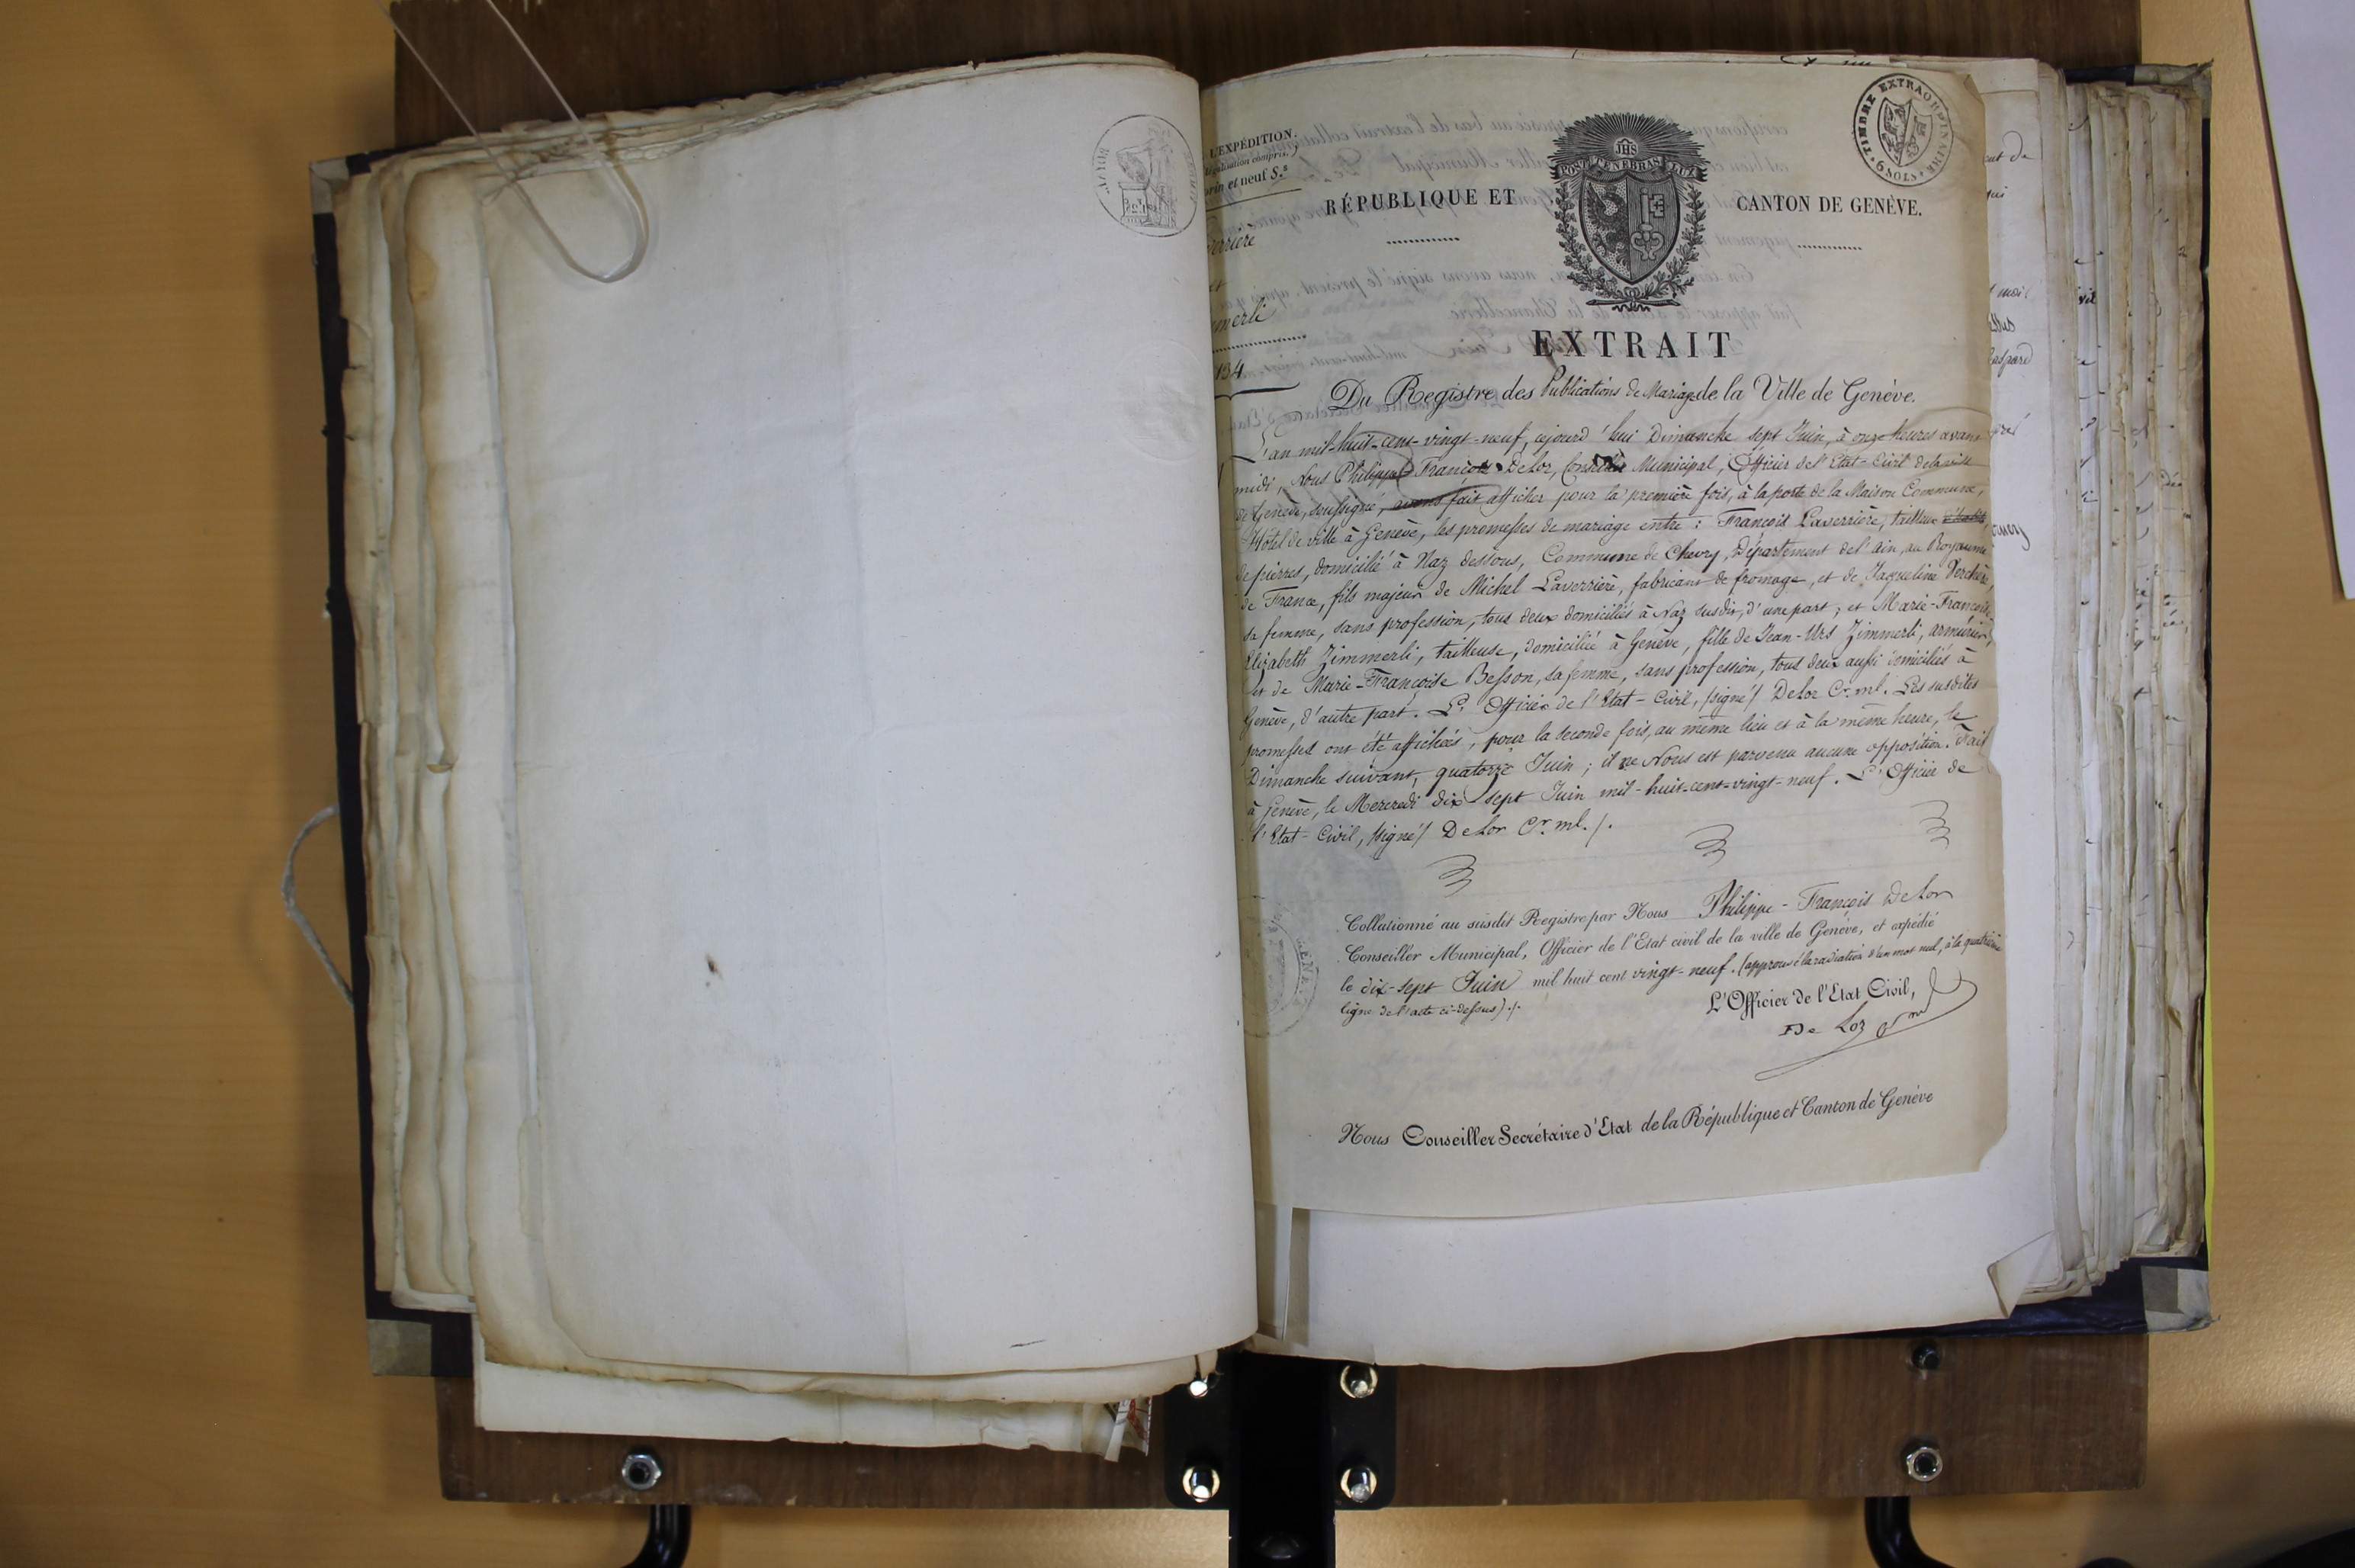 L'EXPÉDITION.
légalisation compris.)
et neuf S.s
RÉPUBLIQUE ET
JHS
POST TENEBRAS LUX
CANTON DE GENÈVE.
TIMBRE EXTRAORDINAIRE
6 SOLS
134
EXTRAIT
Du Registre des Publications de Mariage de la Ville de Genève.
L'an mil-huit-cent-vingt-neuf, cejourd'hui Dimanche sept Juin, à onze heures avant
midi, Nous Philippe François DeLor, Conseiller Municipal, Officier de l'Etat-Civil de la ville
de Genève, soussigné, avons fait afficher pour la première fois, à la porte de la Maison Commune,
Hôtel de ville à Genève, les promesses de mariage entre : François Laverrière, tailleur
de pierres, domicilié à Naz dessous, Commune de Chevry, Département de l'Ain, au Royaume
de France, fils majeur de Michel Laverrière, fabricant de fromage, et de Jaqueline Verchère,
sa femme, sans profession, tous deux domiciliés à Naz susdit, d'une part ; et Marie-Françoise
Elizabeth Zimmerli, tailleuse, domiciliée à Genève, fille de Jean-Urs Zimmerli, armurier,
et de Marie-Françoise Besson, sa femme, sans profession, tous deux aussi domiciliés à
Genève, d'autre part. L'Officier de l'Etat-Civil, (signé) DeLor Cr. ml. Les susdites
promesses ont été affichées, pour la seconde fois, au même lieu et à la même heure, le
Dimanche suivant, quatorze Juin ; il ne Nous est parvenu aucune opposition. Fait
à Genève, le Mercredi dix-sept Juin mil-huit-cent-vingt-neuf. L'Officier de
l'Etat-Civil, (signé) DeLor Cr. ml. /.
Collationné au susdit Registre par Nous Philippe-François DeLor
Conseiller Municipal, Officier de l'Etat civil de la ville de Genève, et expédié
le dix-sept Juin mil huit cent vingt-neuf. (approuvé la radiation d'un mot nul, à la quatrième
ligne de l'acte ci-dessus) ./.
L'Officier de l'Etat Civil,
De Lor
Nous Conseiller Secrétaire d'Etat de la République et Canton de Genève